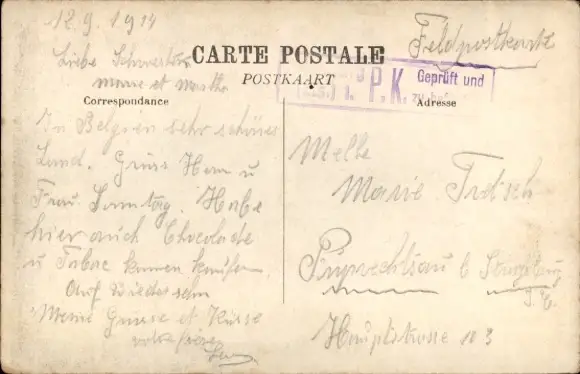 12.9.1914
Feldpostkarte
Liebe Schwester
Marie et Martha
CARTE POSTALE
POSTKAART
P.K. Geprüft und
Correspondance
Adresse
In Belgien sehr schönes
Land. Gruss Herrn u
Frau Habe
hier auch Chocolade
u Tabac kaufen
Auf Wiedersehn
Meine Grüsse et Küsse
votre frère
Melle
Marie
Ruprechtsau b
Hauptstrasse 103